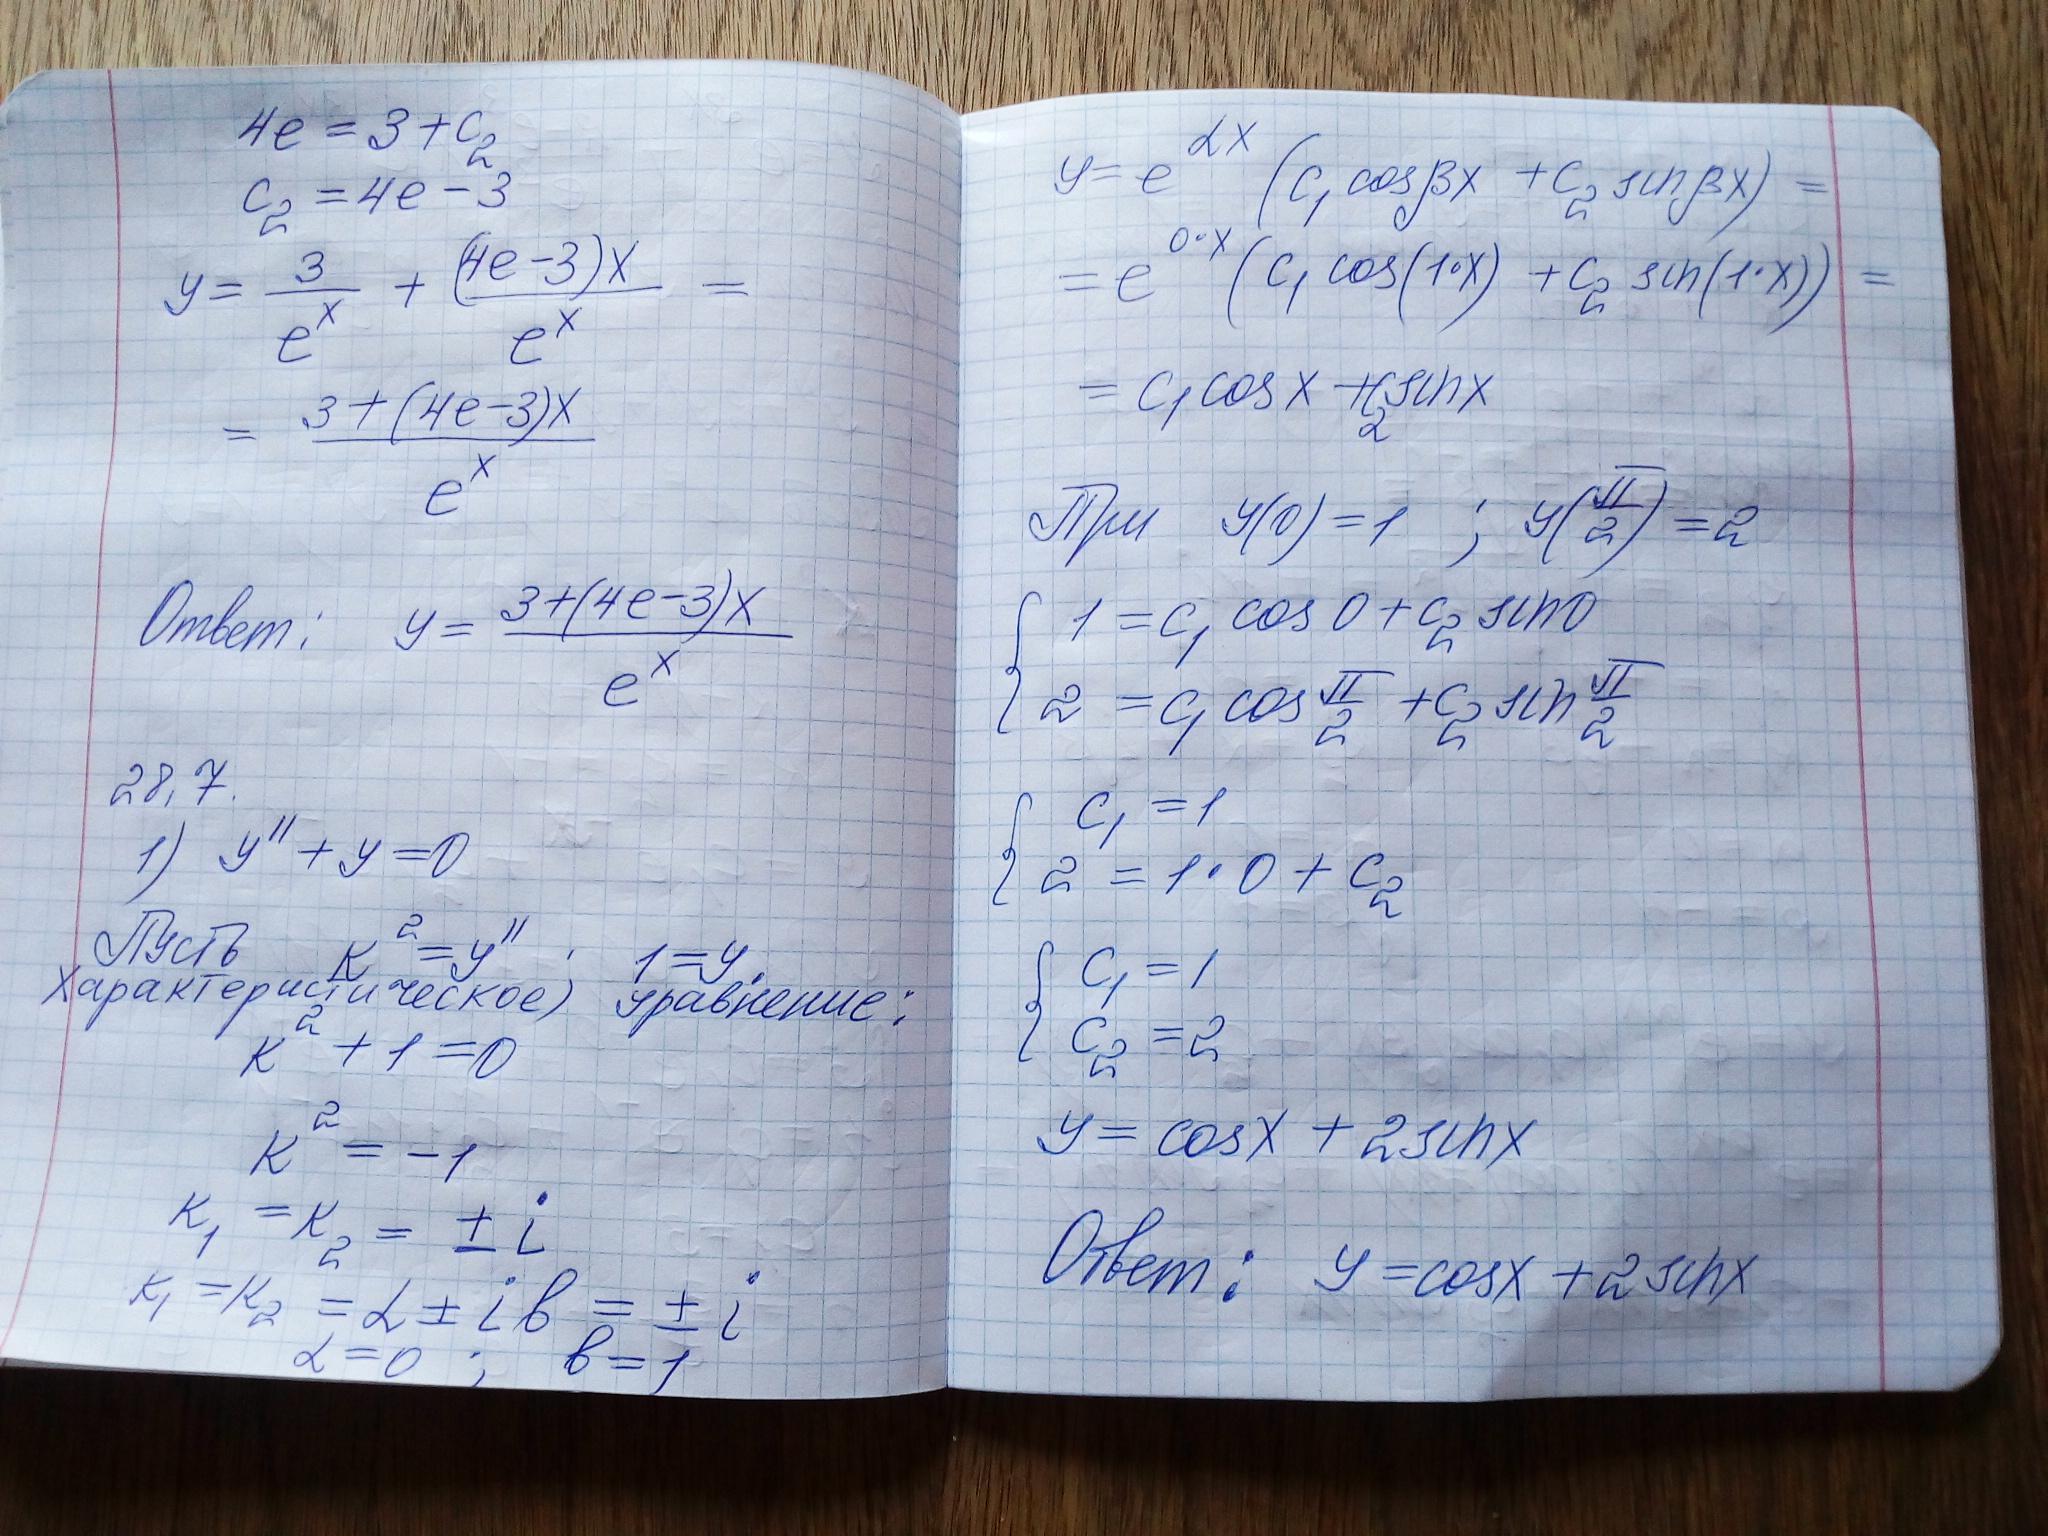 4e = 3 + C₂
C₂ = 4e - 3
y = 3/eˣ + (4e-3)x/eˣ =
= (3+(4e-3)x)/eˣ
Ответ: y = (3+(4e-3)x)/eˣ
28,7.
1) y'' + y = 0
Пусть k² = y'' ; 1 = y.
Характеристическое) уравнение:
k² + 1 = 0
k² = -1
k₁ = k₂ = ± i
k₁ = k₂ = α ± i в = ± i
α = 0 ; в = 1
y = e^(αx) (C₁ cos βx + C₂ sin βx) =
= e^(0·x) (C₁ cos(1·x) + C₂ sin(1·x)) =
= C₁ cos x + C₂ sin x
При y(0) = 1 ; y(π/2) = 2
{ 1 = C₁ cos 0 + C₂ sin 0
2 = C₁ cos π/2 + C₂ sin π/2
{ C₁ = 1
2 = 1·0 + C₂
{ C₁ = 1
C₂ = 2
y = cos x + 2 sin x
Ответ: y = cos x + 2 sin x